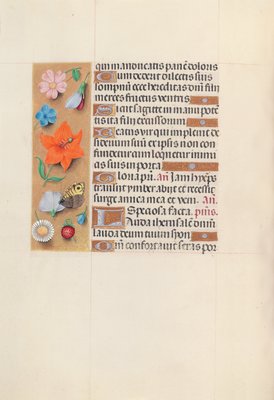 qui manducatis panē doloris
Cum dederit dilectis suis
sompnū ecce hereditas dn̄i filii
merces fructus ventris
Sicut sagitte in manu potē
tis ita filii excussorum
Beatus vir qui implevit de
siderium suū ex ipsis non con
fundetur cum loquetur inimi
cis suis in porta
Gloria pr̄i. Añ Iam hyēps
transiit ymber abiit et recessit
surge amica mea et veni. Añ
Speciosa facta. p̄us.
Lauda iherusalē dn̄m
lauda deum tuum syon
Qm̄ confortavit seras por